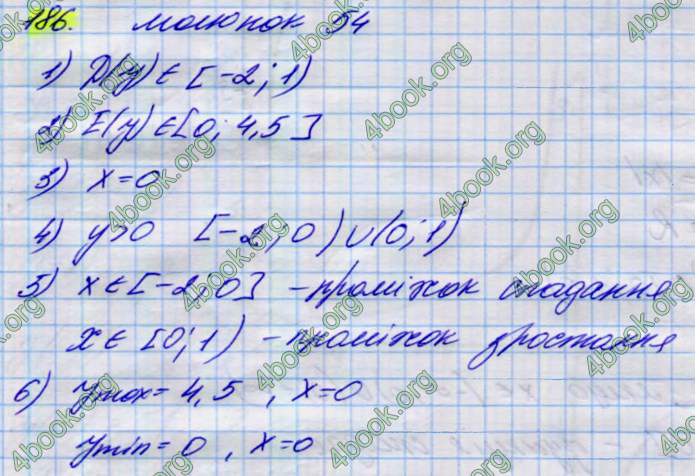 186. малюнок 54
1) D(y) ∈ [-2; 1)
2) E(y) ∈ [0; 4,5]
3) x = 0
4) y>0 [-2; 0) ∪ (0; 1)
5) x ∈ [-2; 0] - проміжок спадання
x ∈ [0; 1) - проміжок зростання
6) ymax = 4,5 , x=0
ymin = 0 , x=0
4book.org